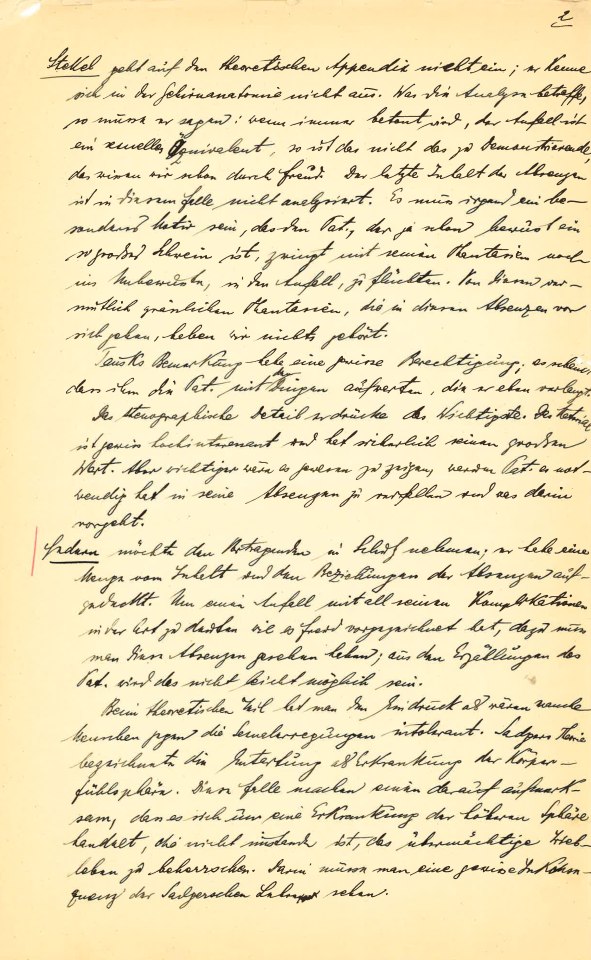 2
Stekel geht auf den theoretischen Appendix nicht ein; er kenne
sich in der Gehirnanatomie nicht aus. Was die Analyse betreffe,
so müsse er sagen: wenn immer betont wird, der Anfall ist
ein sexuelles Äquivalent, so ist das nicht das zu Demonstrierende,
das wissen wir schon durch Freud. Der letzte Inhalt der Absenzen
ist in diesem Falle nicht analysiert. Es muss irgend ein be-
sonderes Motiv sein, das den Pat., der ja schon bewusst ein
so grosses Schwein ist, zwingt mit seinen Phantasien noch
ins Unbewusste, in den Anfall, zu flüchten. Von diesen ver-
mutlich grässlichen Phantasien, die in diesen Absenzen vor
sich gehen, haben wir nichts gehört.
Tausks Bemerkung habe eine gewisse Berechtigung; es scheine
dass ihm die Pat. mit den Dingen aufwarten, die er eben verlangt.
Das stenographische Detail erdrücke das Wichtigste. Das Material
ist gewiss hochinteressant und hat sicherlich seinen grossen
Wert. Aber wichtiger wäre es gewesen zu zeigen, warum Pat. es not-
wendig hat in seine Absenzen zu verfallen und was darin
vorgeht.
Federn möchte den Vortragenden in Schutz nehmen; er habe eine
Menge vom Inhalt und den Beziehungen der Absenzen auf-
gedeckt. Um einen Anfall mit all seinen Komplikationen
in der Art zu deuten wie es Freud vorgezeichnet hat, dazu muss
man diese Absenzen gesehen haben; aus den Erzählungen des
Pat. wird das nicht leicht möglich sein.
Beim theoretischen Teil hat man den Eindruck als wären manche
Menschen gegen die Sexualerregungen intolerant. Sadgers Theorie
bezeichnete die Entartung als Erkrankung der Körper-
fühlsphäre. Diese Fälle machen einen darauf aufmerk-
sam, dass es sich um eine Erkrankung der höheren Sphäre
handelt, die nicht imstande ist, das übermächtige Trieb-
leben zu beherrschen. Darin müsse man eine gewisse Inkonse-
quenz der Sadgerschen Lehre sehen.